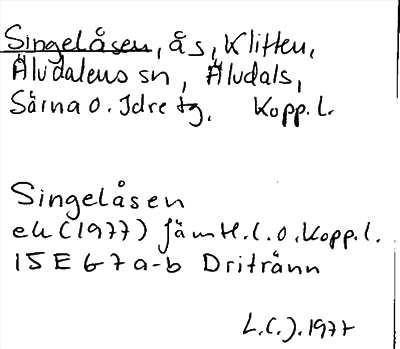 Singelåsen, ås, Klitten,
Älvdalens sn, Älvdals,
Särna o. Idre tg. Kopp. l.
Singelåsen
ek (1977) Jämtl. l. o. Kopp. l.
15E 67 a-b Dritränn
L.C.J. 1977